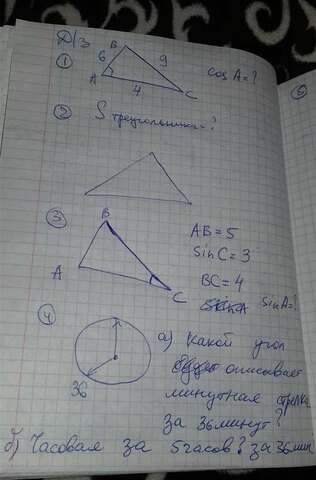 Д/З
① B
6 9 cos A = ?
A 4 C
② S треугольника = ?
③ B
AB = 5
sin C = 3
A BC = 4
C sin A = ?
④ а) Какой угол
описывает
36 минутная стрелка
за 36 минут?
б) Часовая за 5 часов? за 36 мин
⑤